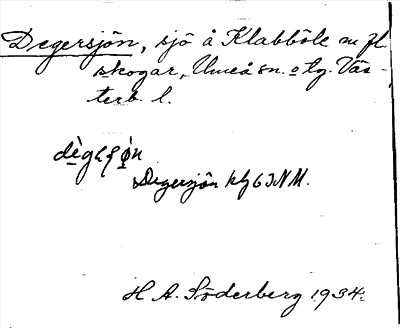 Degersjön, sjö å Klabböle m fl
skogar, Umeå sn. o tg. Väs-
terb. l.
Degersjön hfg 63 NM.
H A. Söderberg 1934.